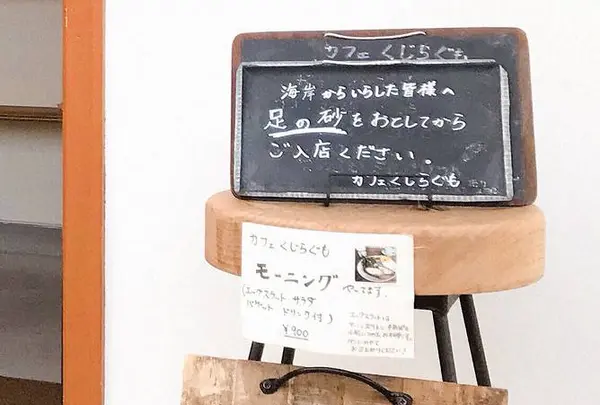 カフェくじらぐも
海岸からいらした皆様へ
足の砂をおとしてから
ご入店ください。
カフェくじらぐも
カフェくじらぐも
モーニング やってます。
(エッグスラット サラダ
バケット ドリンク付)
¥900
エッグスラットは